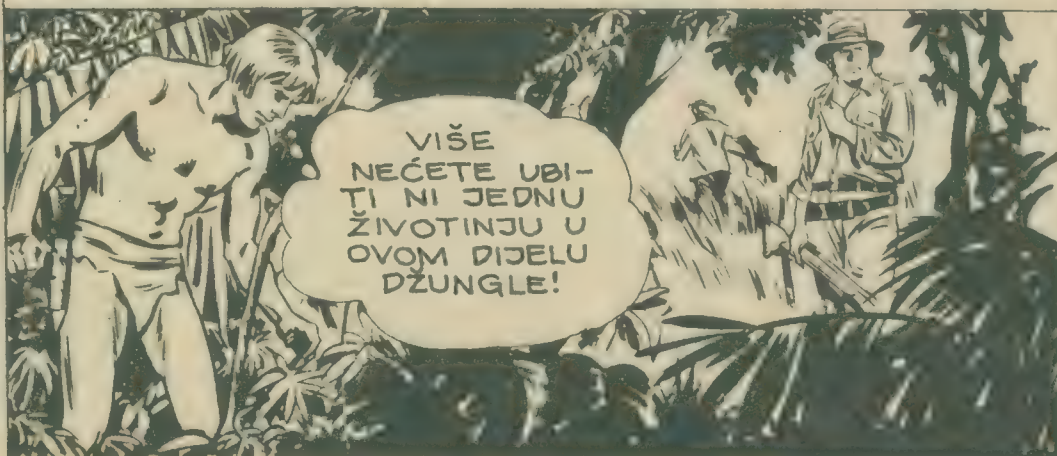 VIŠE
NEĆETE UBI-
TI NI JEDNU
ŽIVOTINJU U
OVOM DIJELU
DŽUNGLE!